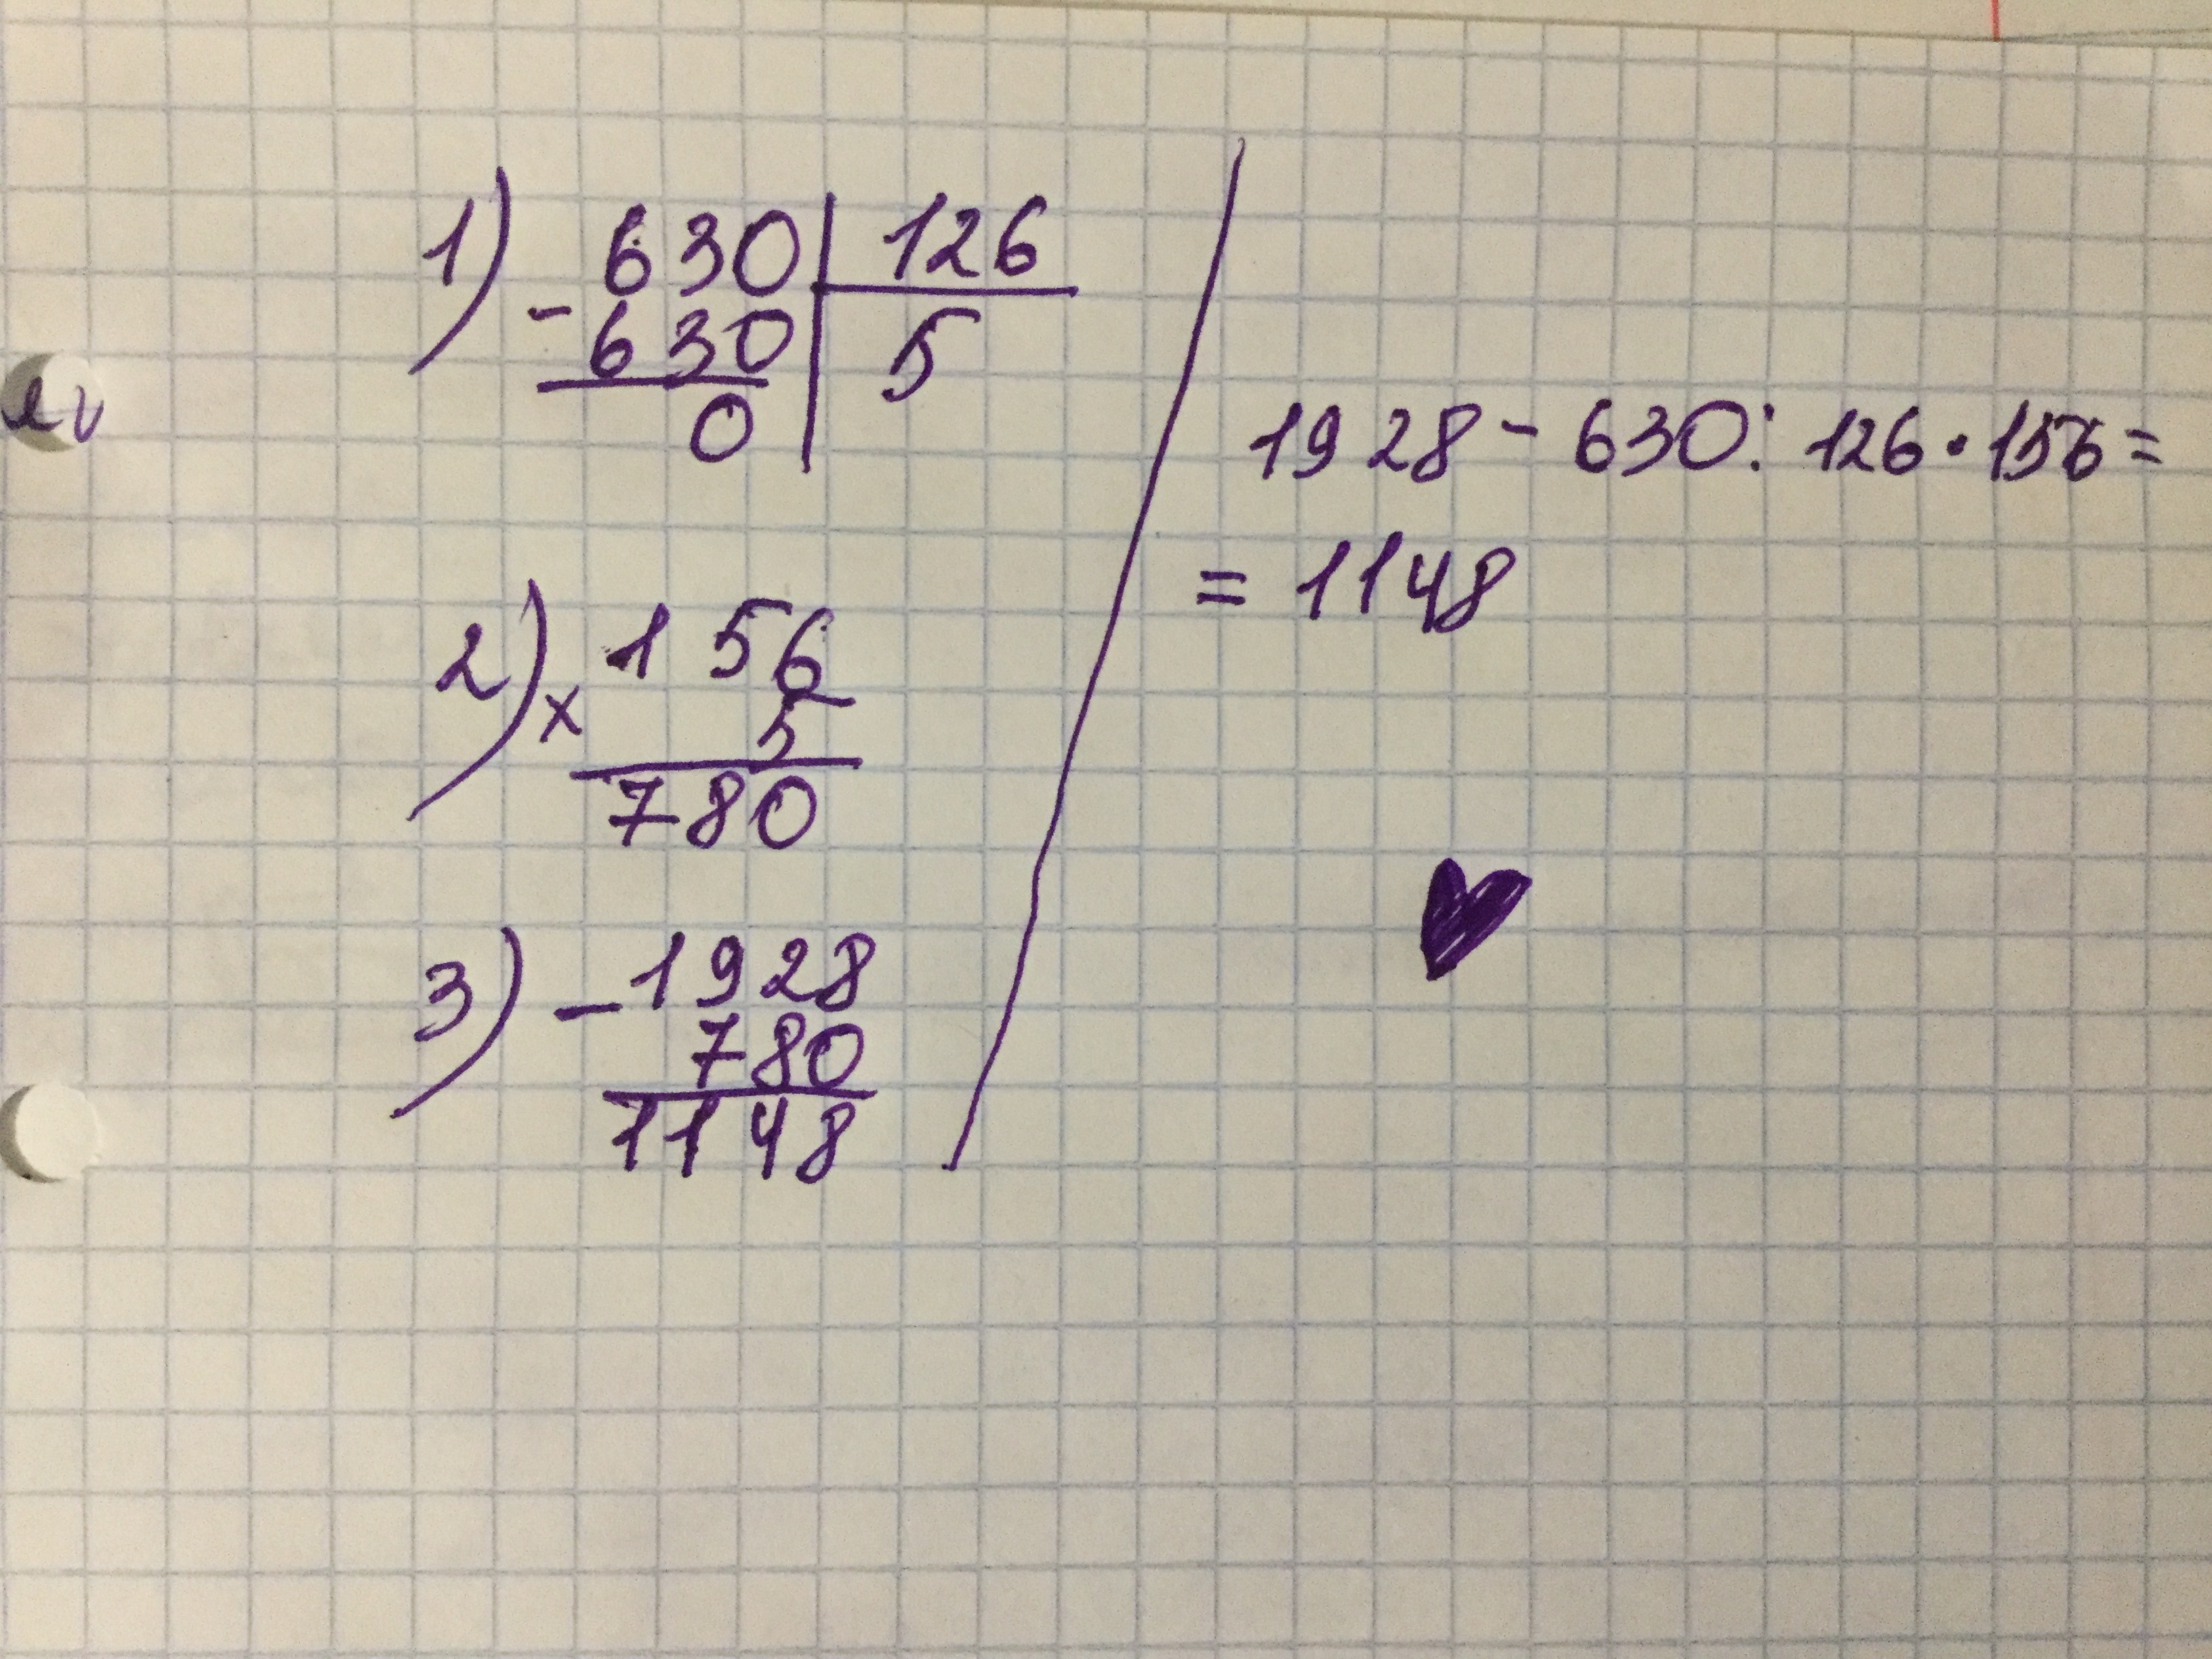 1) 630 | 126
- 630 | 5
0
2) 156
x 5
780
3) - 1928
780
1148
1928 - 630 : 126 · 156 =
= 1148